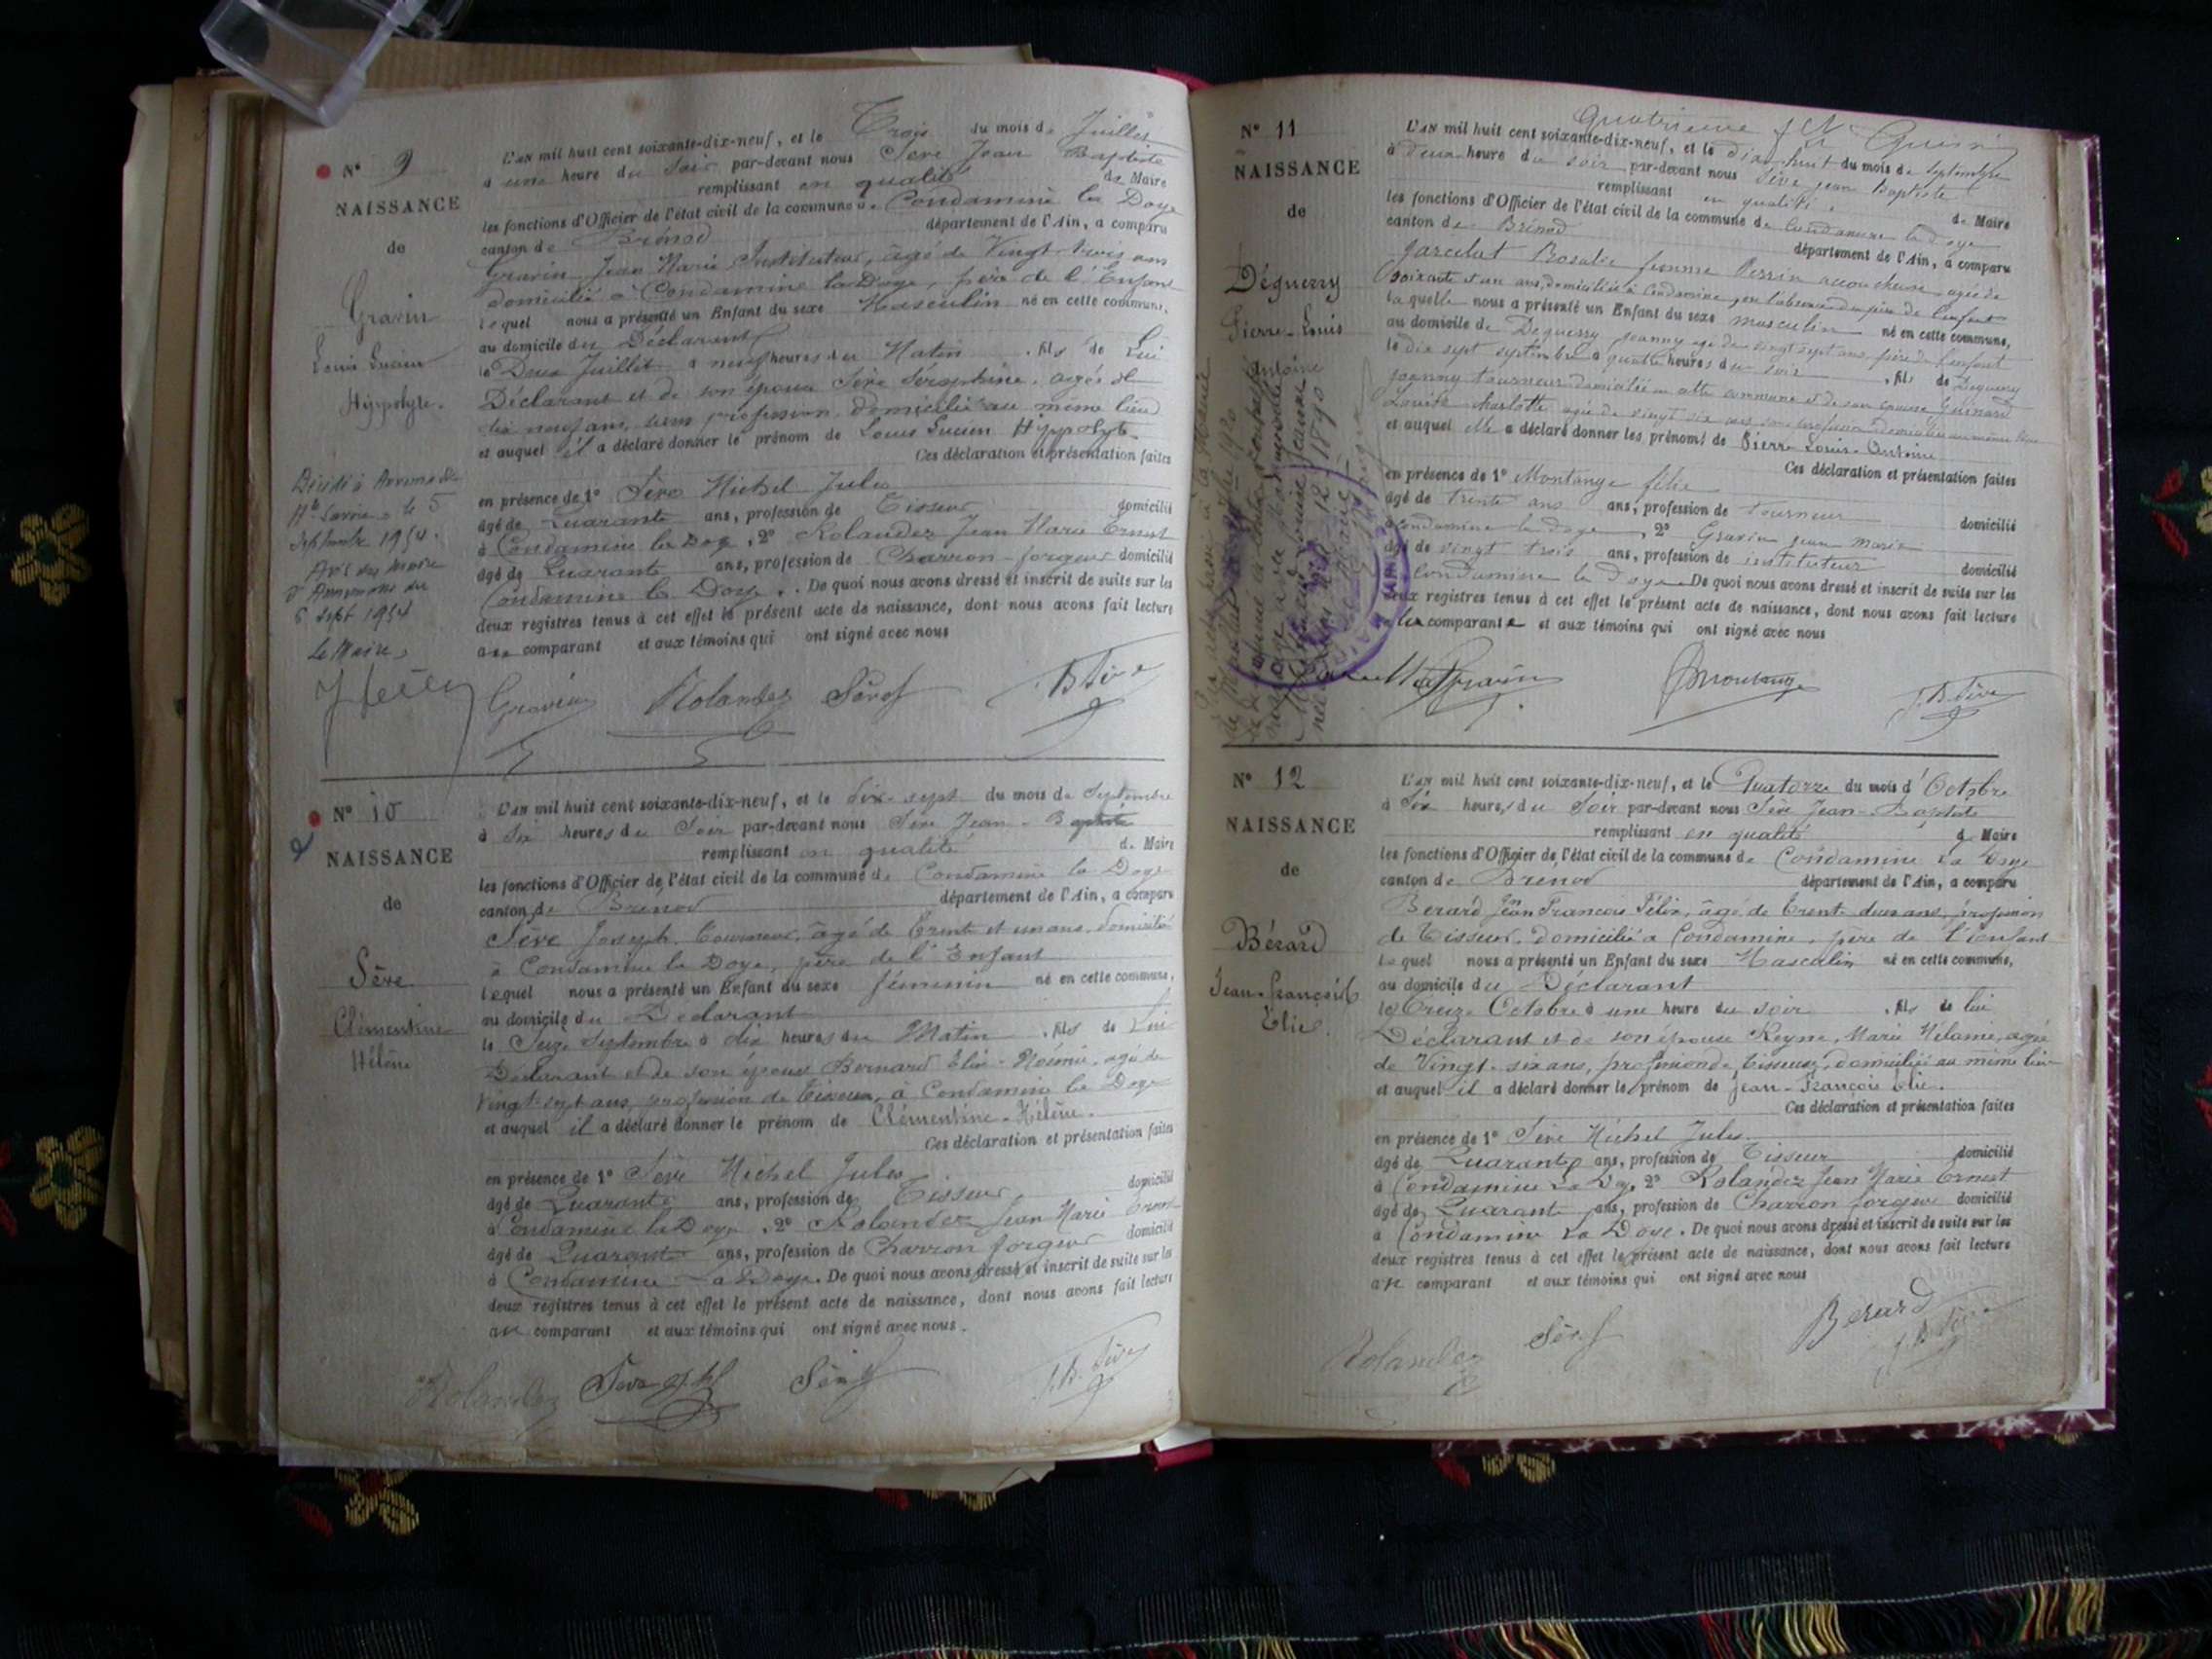 N° 9
NAISSANCE
de
Gravin
Louis Lucien
Hyppolyte.
Décédé à Annemasse
Hte Savoie le 5
Septembre 1954.
Avis du Maire
d'Annemasse du
6 Sept 1954
Le Maire,
L'an mil huit cent soixante-dix-neuf, et le Trois du mois de Juillet
à une heure du Soir par-devant nous Sève Jean Baptiste
remplissant en qualité de Maire
les fonctions d'Officier de l'état civil de la commune de Condamine la Doye
canton de Brénod département de l'Ain, a comparu
Gravin Jean Marie Instituteur, âgé de Vingt trois ans
domicilié à Condamine la Doye, père de l'Enfant
lequel nous a présenté un Enfant du sexe Masculin né en cette commune,
au domicile du Déclarant
le Deux Juillet à neuf heures du Matin, fils de Lui
Déclarant et de son épouse Sève Séraphine, agée de
dix neuf ans, sans profession domiciliée au même lieu
et auquel il a déclaré donner le prénom de Louis Lucien Hyppolyte.
Ces déclaration et présentation faites
en présence de 1° Sève Michel Jules
âgé de Quarante ans, profession de Tisseur domicilié
à Condamine la Doye, 2° Rolandez Jean Marie Ernest
âgé de Quarante ans, profession de Charron-forgeur domicilié
Condamine la Doye. De quoi nous avons dressé et inscrit de suite sur les
deux registres tenus à cet effet le présent acte de naissance, dont nous avons fait lecture
au comparant et aux témoins qui ont signé avec nous
Gravin Rolandez Sève J B. Sève
N° 10
NAISSANCE
de
Sève
Clémentine
Hélène
L'an mil huit cent soixante-dix-neuf, et le dix-sept du mois de Septembre
à Six heures du Soir par-devant nous Sève Jean-Baptiste
remplissant en qualité de Maire
les fonctions d'Officier de l'état civil de la commune de Condamine la Doye
canton de Brénod département de l'Ain, a comparu
Sève Joseph. Tourneur, âgé de Trente et un ans, domicilié
à Condamine la Doye, père de l'Enfant
lequel nous a présenté un Enfant du sexe féminin né en cette commune,
au domicile du Déclarant
le Seize Septembre à dix heures du Matin, fille de Lui
Déclarant et de son épouse Bernard Elie-Noémie, agée de
Vingt-sept ans, profession de Tisseur, à Condamine la Doye
et auquel il a déclaré donner le prénom de Clémentine-Hélène.
Ces déclaration et présentation faites
en présence de 1° Sève Michel Jules
âgé de Quarante ans, profession de Tisseur domicilié
à Condamine la Doye, 2° Rolandez Jean Marie Ernest
âgé de Quarante ans, profession de Charron forgeur domicilié
à Condamine La Doye. De quoi nous avons dressé et inscrit de suite sur les
deux registres tenus à cet effet le présent acte de naissance, dont nous avons fait lecture
au comparant et aux témoins qui ont signé avec nous.
Rolandez Sève Sève J. B. Sève
N° 11
NAISSANCE
de
Déguerry
Pierre-Louis
Antoine
Quatrieme
L'an mil huit cent soixante-dix-neuf, et le dix-huit du mois de Septembre
à deux heure du soir par-devant nous Sève jean Baptiste
remplissant en qualité de Maire
les fonctions d'Officier de l'état civil de la commune de Condamine la doye
canton de Brénod département de l'Ain, a comparu
Garcelut Rosalie femme Perrin accoucheuse agée de
soixante et un ans, domiciliée à Condamine, en l'absence du père de l'enfant
laquelle nous a présenté un Enfant du sexe masculin né en cette commune,
au domicile de Deguerry joanny agé de vingt sept ans, père de l'enfant
le dix sept septembre à quatre heures du soir, fils de Deguerry
joanny tourneur domicilié en cette commune et de son épouse Guinard
Louise Charlotte agée de vingt six ans sans profession domiciliée au même lieu
et auquel elle a déclaré donner les prénoms de Pierre-Louis-Antoine
Ces déclaration et présentation faites
en présence de 1° Montange félix
âgé de trente ans ans, profession de tourneur domicilié
Condamine la doye, 2° Gravin jean marie
âgé de vingt trois ans, profession de instituteur domicilié
Condamine la doye De quoi nous avons dressé et inscrit de suite sur les
deux registres tenus à cet effet le présent acte de naissance, dont nous avons fait lecture
à la comparante et aux témoins qui ont signé avec nous
Gravin Montange J. B. Sève
N° 12
NAISSANCE
de
Bérard
Jean-François
Elie.
L'an mil huit cent soixante-dix-neuf, et le Quatorze du mois d'Octobre
à Six heures du Soir par-devant nous Sève Jean-Baptiste
remplissant en qualité de Maire
les fonctions d'Officier de l'état civil de la commune de Condamine La Doye
canton de Brenod département de l'Ain, a comparu
Berard Jean François Félix, âgé de trente deux ans, profession
de Tisseur, domicilié à Condamine, père de l'enfant
lequel nous a présenté un Enfant du sexe Masculin né en cette commune,
au domicile du Déclarant
le Treize Octobre à une heure du soir, fils de lui
Déclarant et de son épouse Reyne, Marie Mélanie, agée
de Vingt-six ans, profession de tisseuse, domiciliée au même lieu
et auquel il a déclaré donner le prénom de Jean-François Elie.
Ces déclaration et présentation faites
en présence de 1° Sève Michel Jules
âgé de Quarante ans, profession de Tisseur domicilié
à Condamine La Doye 2° Rolandez Jean Marie Ernest
âgé de Quarante ans, profession de Charron forgeur domicilié
à Condamine La Doye. De quoi nous avons dressé et inscrit de suite sur les
deux registres tenus à cet effet le présent acte de naissance, dont nous avons fait lecture
au comparant et aux témoins qui ont signé avec nous
Rolandez Sève Berard J. B. Sève